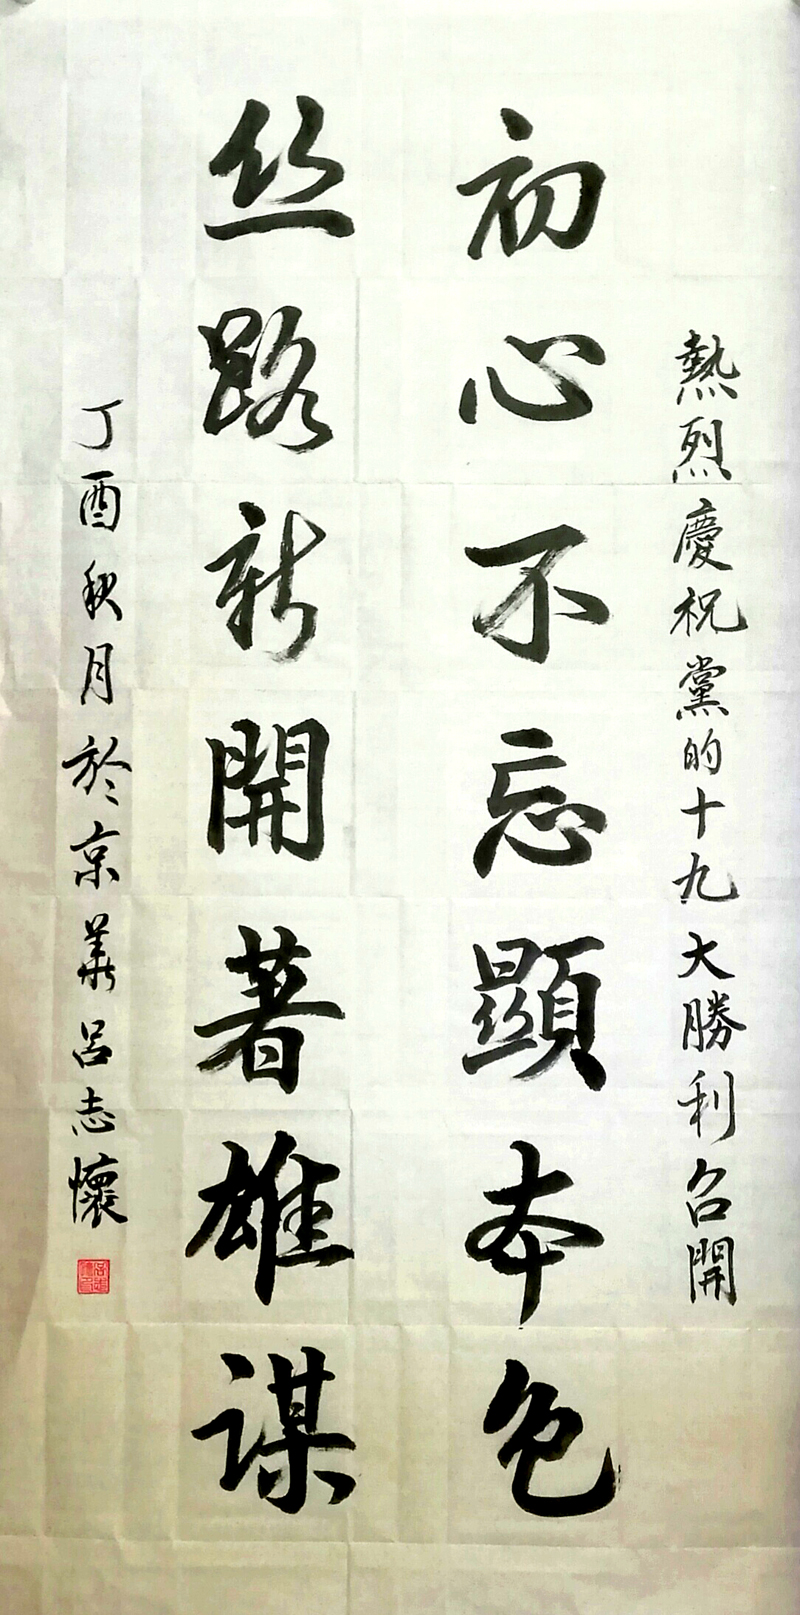 熱烈慶祝黨的十九大勝利召開
初心不忘顯本色
丝路新開著雄謀
丁酉秋月於京華呂志懷